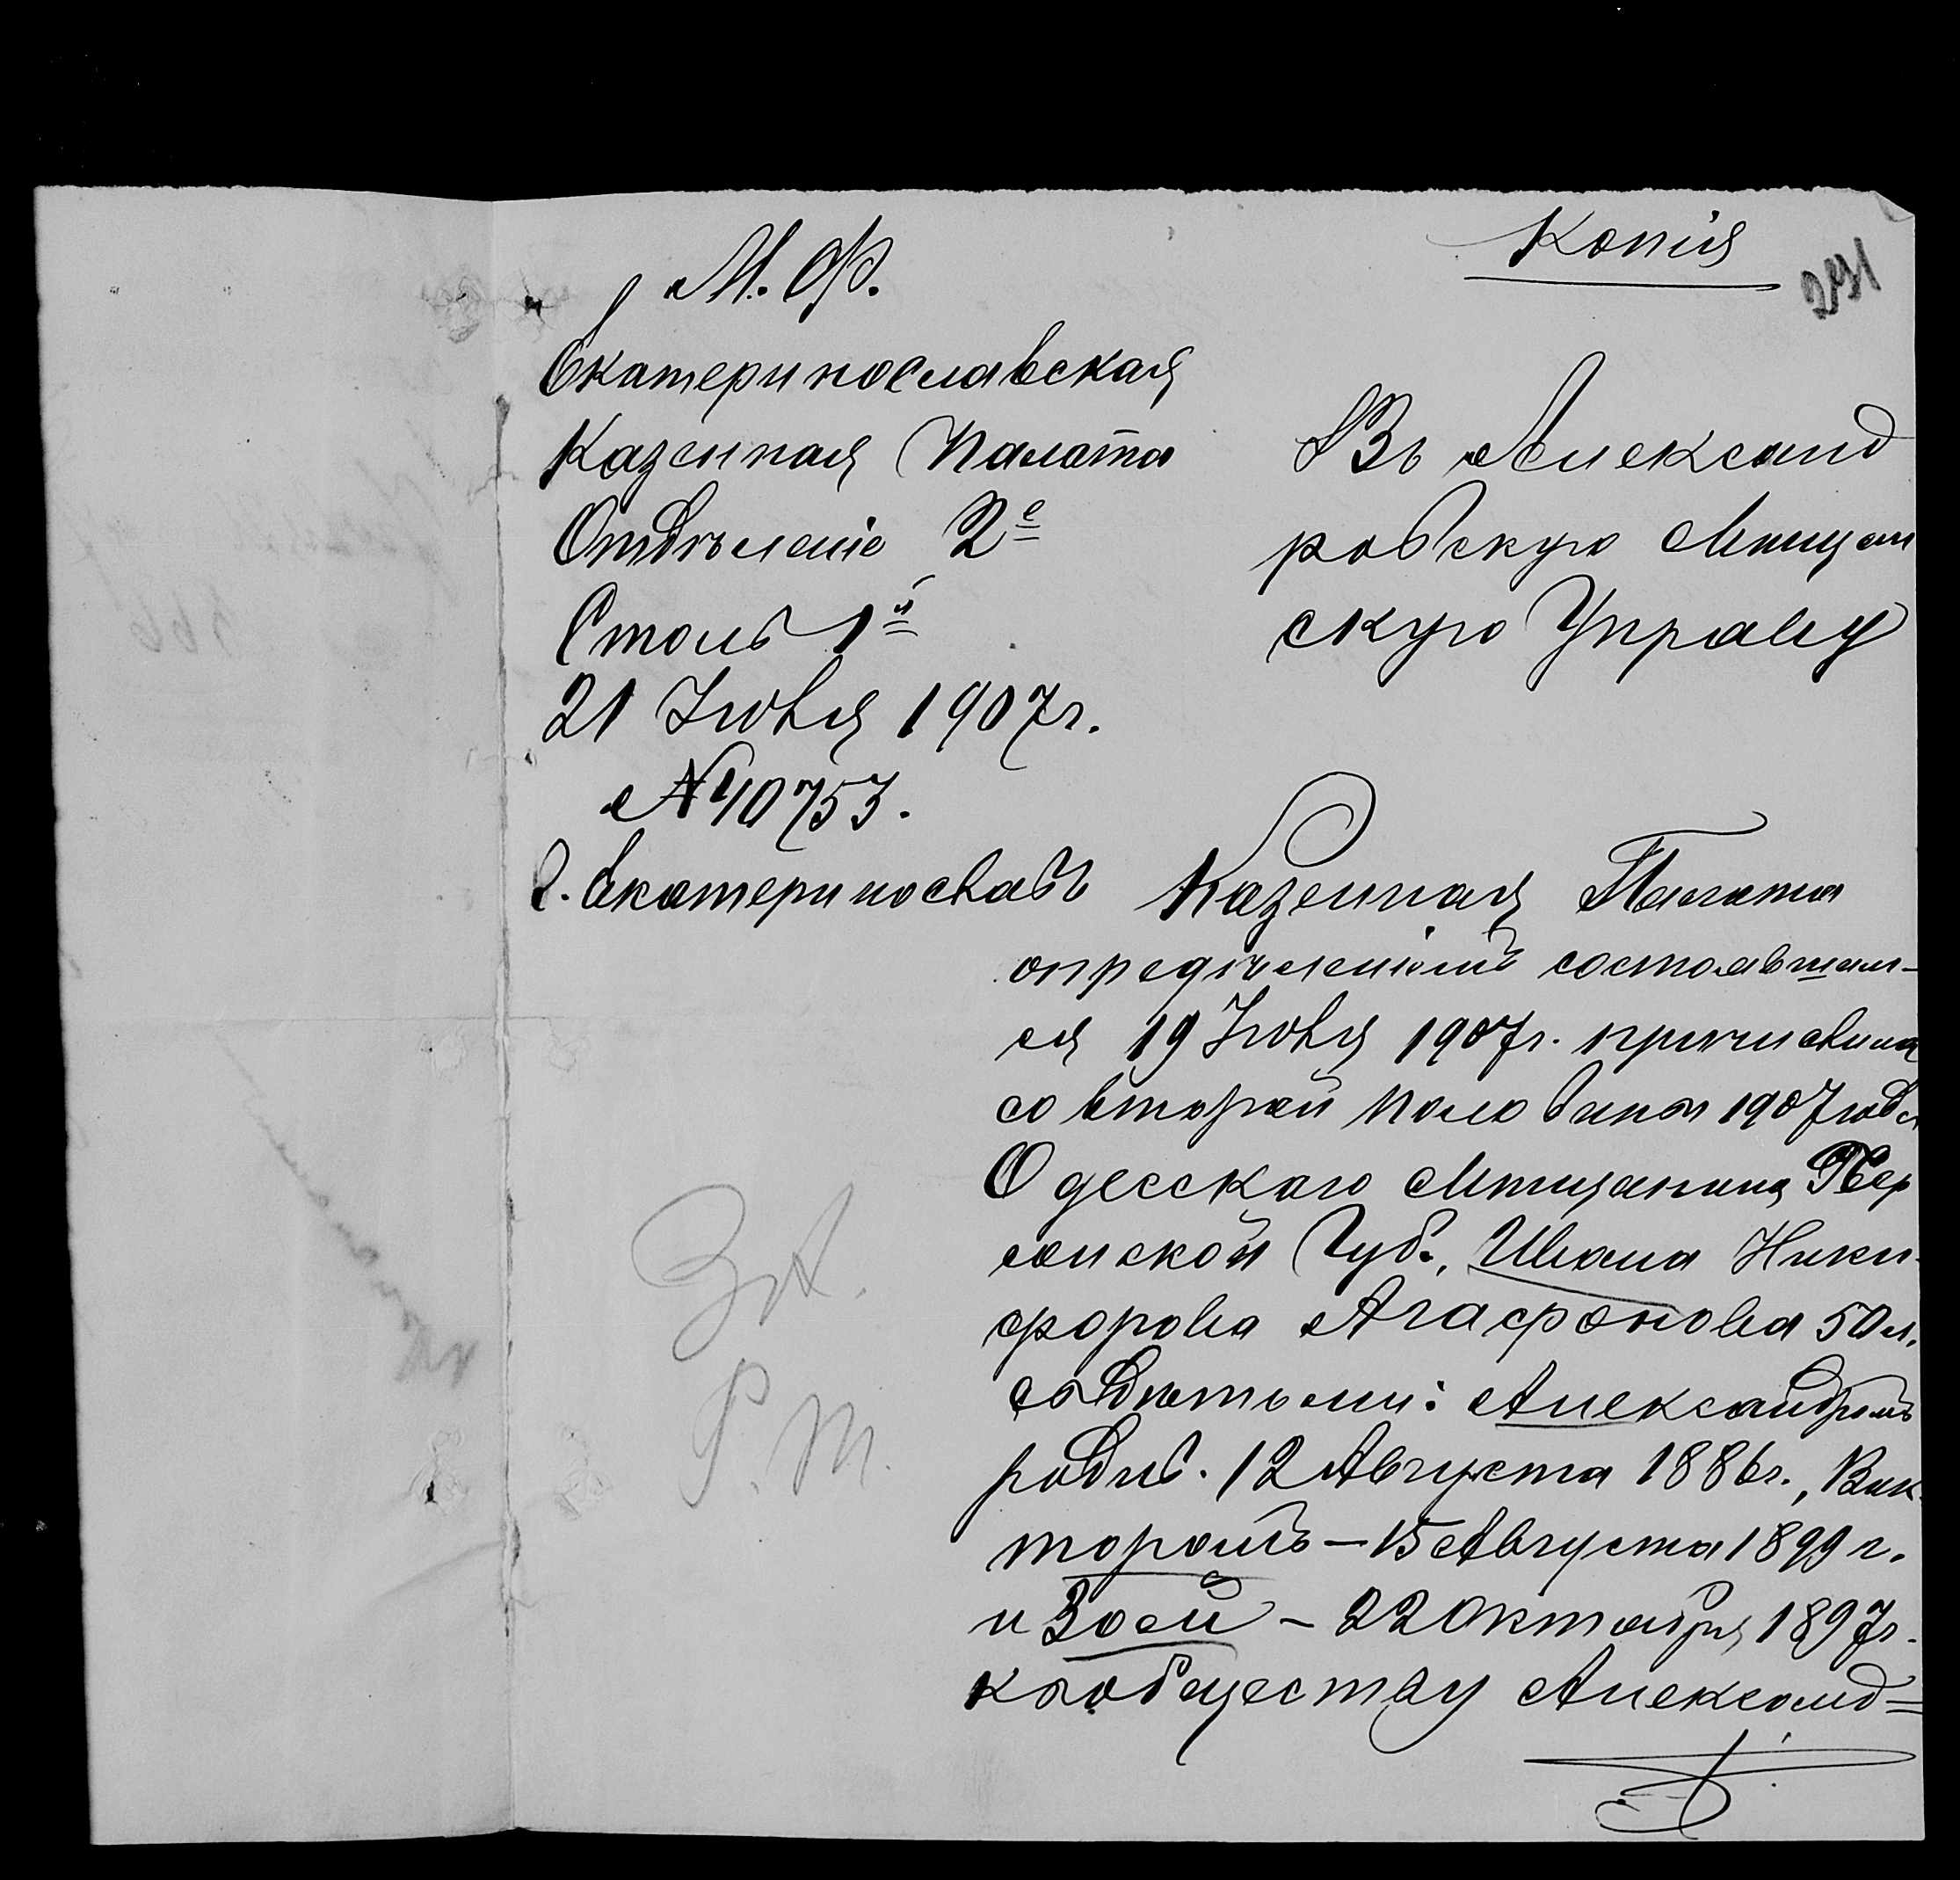 Копія
291
М. Ф.
Екатеринославская
Казенная Палата
Отдѣленіе 2е
Столъ 1й
21 Іюня 1907 г.
№ 40753.
г. Екатеринославъ
Въ Александ
ровскую Мѣщан
скую Управу
Казенная Палата
опредѣленіемъ состоявшим-
ся 19 Іюня 1907 г. причислила
со второй половины 1907 года
Одесскаго Мѣщанина Хер
сонской Губ., Ивана Ники-
форова Агафонова 50 л.
съ дѣтьми: Александромъ
родив. 12 Августа 1886 г., Вик-
торомъ — 15 Августа 1899 г.
и Зоей — 22 Октября 1897 г.
къ обществу Александ=
З А.
Р. М.